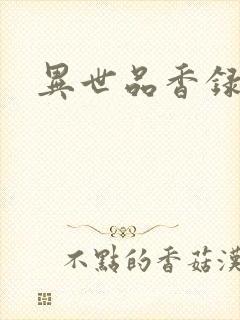 異世品香録
不點的香菇漢